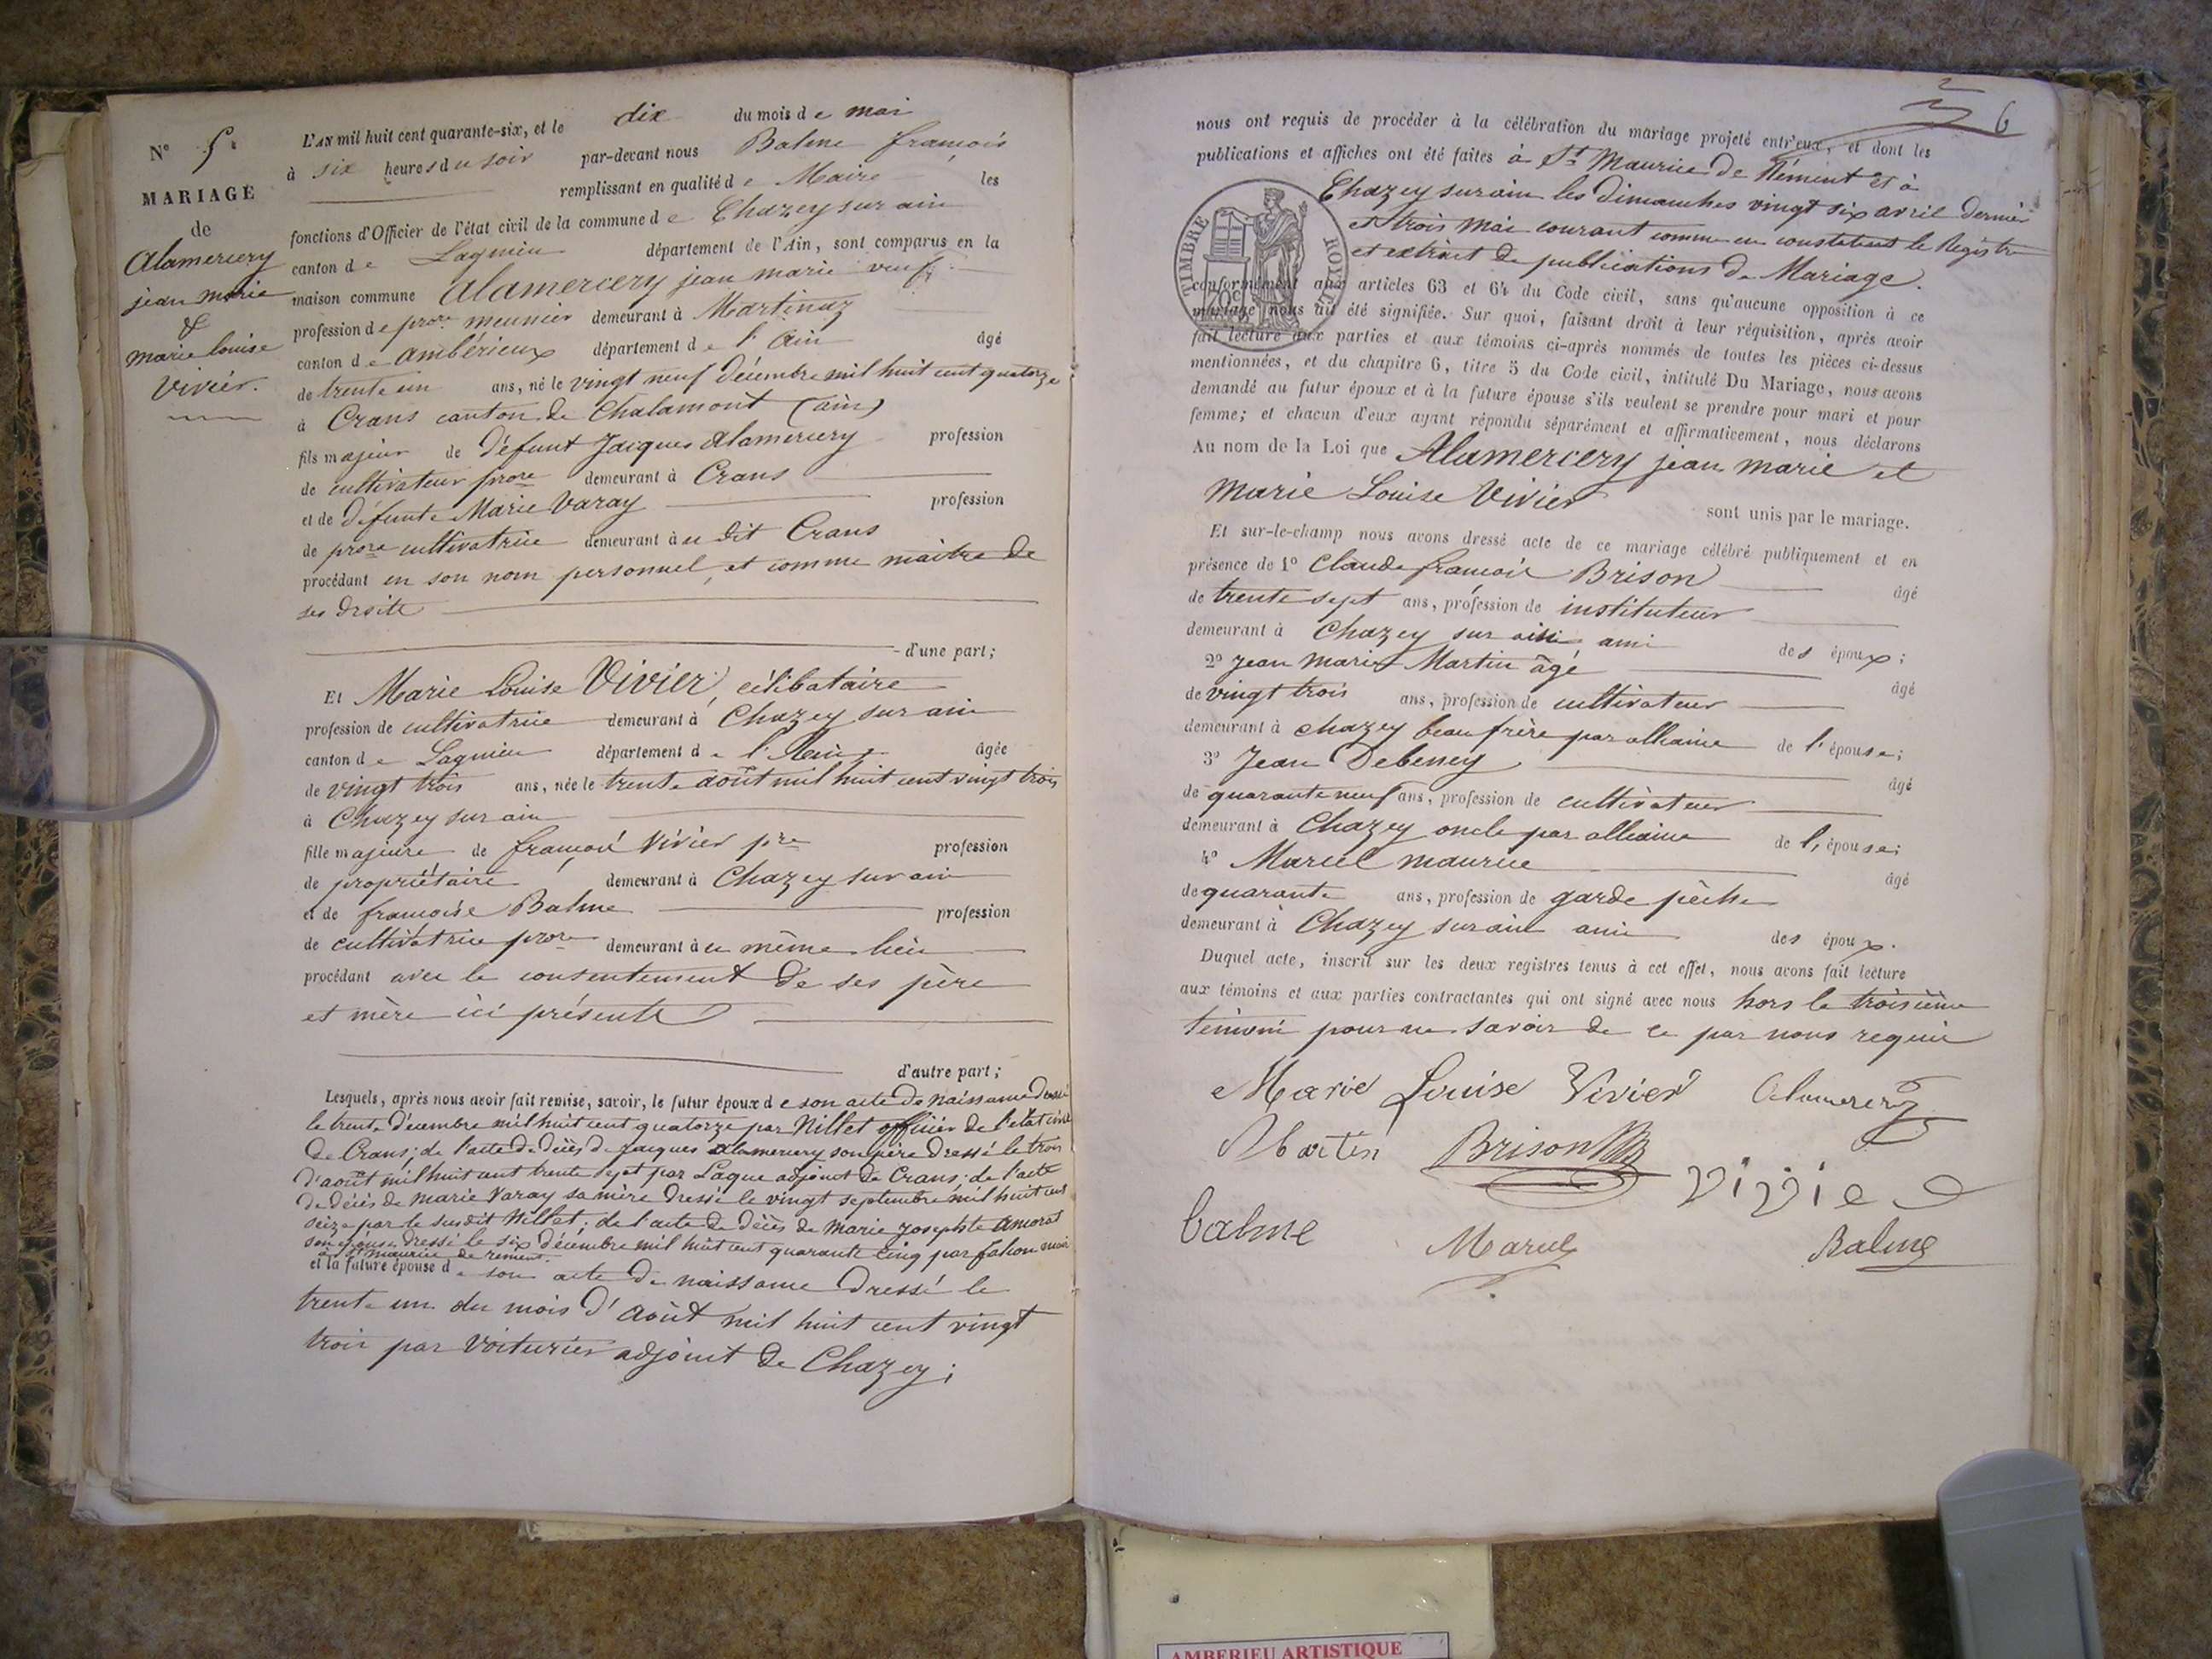 N° 5.
MARIAGE
de
Alamercery
jean marie
&
marie louise
Vivier.
L'AN mil huit cent quarante-six, et le dix du mois de mai
à six heures du soir par-devant nous Balme françois
remplissant en qualité de Maire les
fonctions d'Officier de l'état civil de la commune de Chazey sur ain
canton de Lagnieu département de l'Ain, sont comparus en la
maison commune Alamercery jean marie veuf
profession de propre meunier demeurant à Martinaz
canton de ambérieux département de l'Ain âgé
de trente un ans, né le vingt neuf décembre mil huit cent quatorze
à Crans canton de Chalamont (ain)
fils majeur de défunt Jacques Alamercery profession
de cultivateur propre demeurant à Crans
et de défunte Marie Varay profession
de propre cultivatrice demeurant à ce dit Crans
procédant en son nom personnel, et comme maitre de
ses droits
d'une part;
Et Marie Louise Vivier, célibataire
profession de cultivatrice demeurant à Chazey sur ain
canton de Lagnieu département de l'Ain âgée
de vingt trois ans, née le trente août mil huit cent vingt trois
à Chazey sur ain
fille majeure de françois Vivier pre profession
de propriétaire demeurant à Chazey sur ain
et de françoise Balme profession
de cultivatrice propre demeurant à ce même lieu
procédant avec le consentement de ses père
et mère ici présents
d'autre part;
Lesquels, après nous avoir fait remise, savoir, le futur époux de son acte de naissance dressé
le trente décembre mil huit cent quatorze par Nillet officier de l'état civil
de Crans; de l'acte de décès de Jacques Alamercery son père dressé le trois
d'août mil huit cent trente sept par Laque adjoint de Crans; de l'acte
de décès de Marie Varay sa mère dressé le vingt septembre mil huit cent
seize par le susdit Nillet; de l'acte de décès de Marie Josephte Amorat
son épouse dressé le six décembre mil huit cent quarante cinq par
à St maurice de rément.
et la future épouse de son acte de naissance dressé le
trente un du mois d'août mil huit cent vingt
trois par Voiturier adjoint de Chazey;
6
nous ont requis de procéder à la célébration du mariage projeté entr'eux, et dont les
publications et affiches ont été faites à St Maurice de Rément et à
Chazey sur ain les dimanches vingt six avril dernier
et trois mai courant comme en constatent le Registre
et extrait de publications de Mariage.
TIMBRE ROYAL
70c
conformément aux articles 63 et 64 du Code civil, sans qu'aucune opposition à ce
mariage nous ait été signifiée. Sur quoi, faisant droit à leur réquisition, après avoir
fait lecture aux parties et aux témoins ci-après nommés de toutes les pièces ci-dessus
mentionnées, et du chapitre 6, titre 5 du Code civil, intitulé Du Mariage, nous avons
demandé au futur époux et à la future épouse s'ils veulent se prendre pour mari et pour
femme; et chacun d'eux ayant répondu séparément et affirmativement, nous déclarons
Au nom de la Loi que Alamercery jean marie et
Marie Louise Vivier
sont unis par le mariage.
Et sur-le-champ nous avons dressé acte de ce mariage célébré publiquement et en
présence de 1° Claude françois Brison âgé
de trente sept ans, profession de instituteur
demeurant à Chazey sur ain ami des époux;
2° Jean Marie Martin âgé âgé
de vingt trois ans, profession de cultivateur
demeurant à chazey beau frère par alliance de l'épouse;
3° Jean Debeney âgé
de quarante neuf ans, profession de cultivateur
demeurant à Chazey oncle par alliance de l'épouse;
4° Marcel maurice âgé
de quarante ans, profession de garde pêche
demeurant à Chazey sur ain ami des époux.
Duquel acte, inscrit sur les deux registres tenus à cet effet, nous avons fait lecture
aux témoins et aux parties contractantes qui ont signé avec nous hors le troisième
témoin pour ne savoir de ce par nous requis
Marie Louise Vivier Alamercery
Martin Brison Vivier
balme Marcel Balme
AMBERIEU ARTISTIQUE